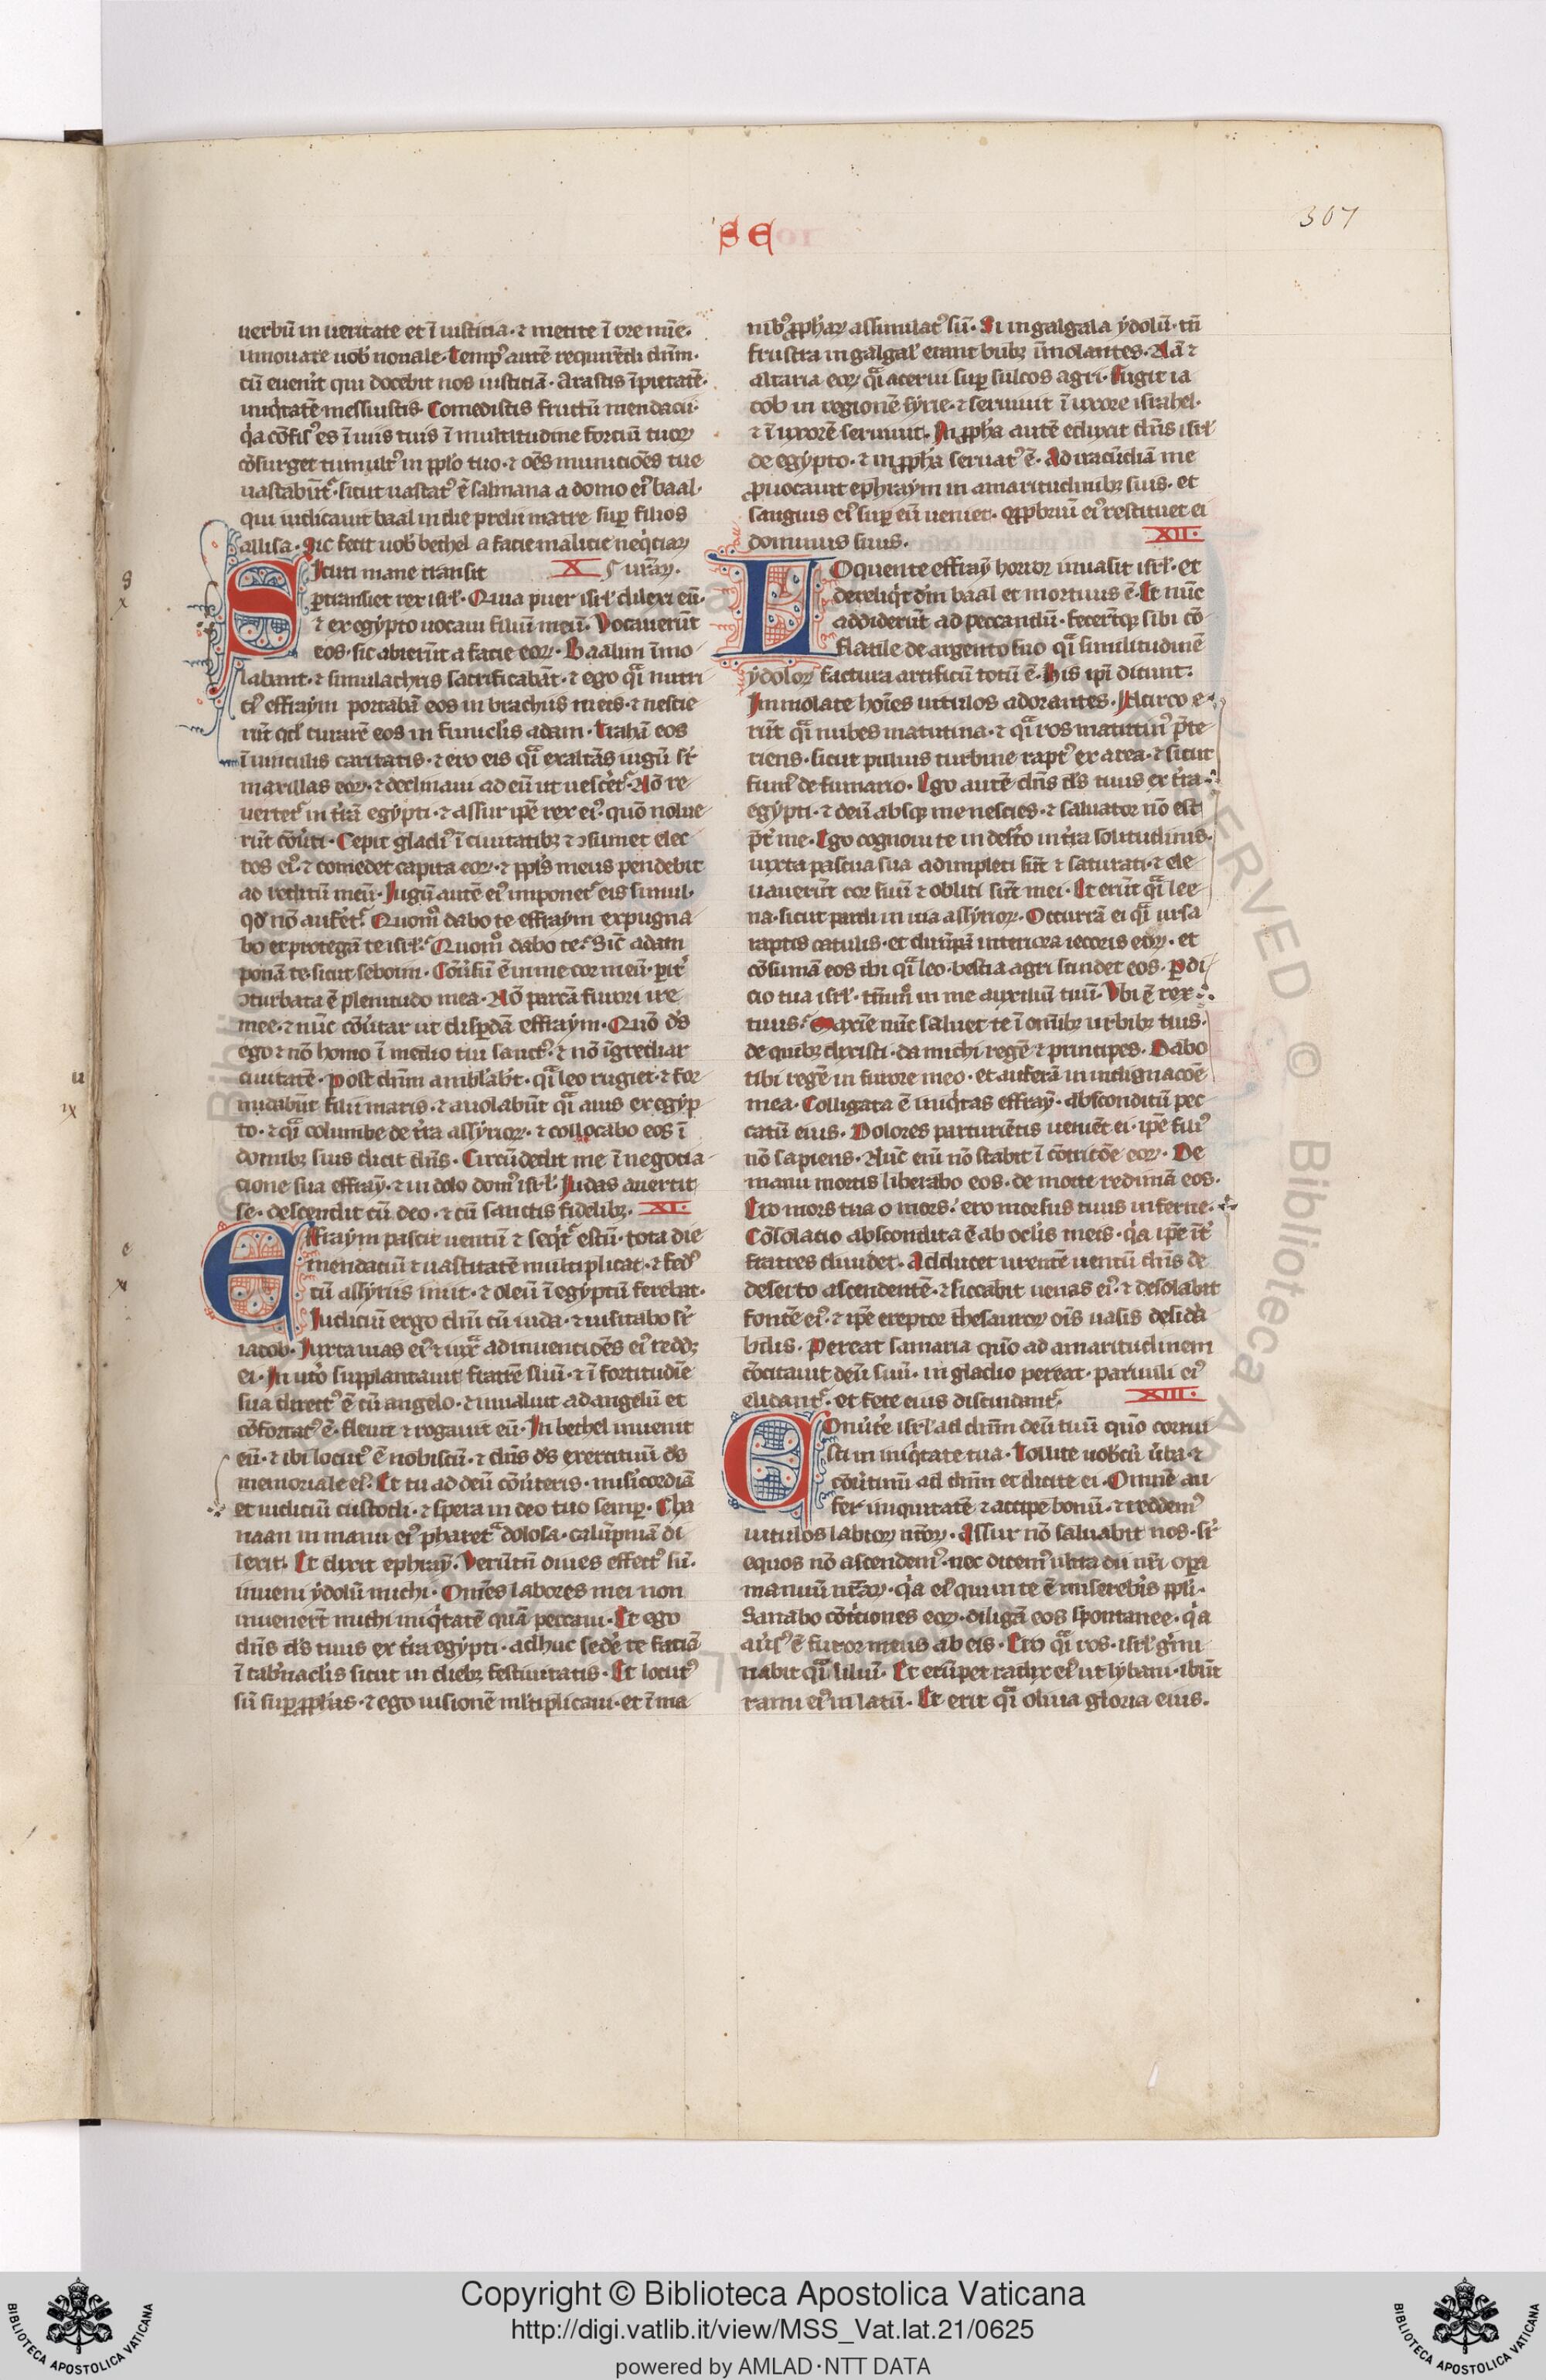 307
SE
uerbū in ueritate et ī iusticia · ⁊ metite ī ore mīe ·
innouate uob̾ nouale · Tempꝰ autē requirēdi dnm̄ ·
cū ueneīt qui docebit nos iusticiā · Arastis īpietatē ·
iniq̇tatē messuistis · Comedistis fructū mendacii ·
q̇a cōfisꝰ es ī uiis tuis ī multitudine fortiū tuoꝝ
cōsurget tumultꝰ in ppl̄o tuo · ⁊ oēs municiōes tue
uastabūt̄ · sicut uastatꝰ ē salmana a domo eiꝰ baal ·
qui iudicauit baal in die prelii matre suꝑ filios
allisa · Sic fecit uob̾ bethel a facie malicie neq̇ciaꝝ
Icuti mane transit X urāꝝ ·
ꝑtransiet rex isrl̄ · Quia puer isrl̄ dilexi eū ·
⁊ ex egypto uocaui filiū meū · Vocauerūt
eos · sic abierūt a facie eoꝝ · Baalim īmo
labant · ⁊ simulachris sacrificabāt · ⁊ ego qͣi nutri
ciꝰ effraym portabā eos in brachiis meis · ⁊ nescie
rūt qd̾ curarē eos in funicl̄is adam · Trahā eos
ī uinculis caritatis · ⁊ ero eis qͣi exaltās iugū sꝛ̄
maxillas eoꝝ · ⁊ declinaui ad eū ut uescer̄et̄ · Nō re
uertet̄ in t̄rā egypti · ⁊ assur ip̄e rex eiꝰ · quō nolue
rūt cōūti · Cepit gladiꝰ ī ciuitatibꝫ ⁊ ɔsumet elec
tos eiꝰ · ⁊ comedet capita eoꝝ · ⁊ ppl̄s meus pendebit
ad reditū meū · Iugū autē eiꝰ imponet̄ eis simul ·
qd̾ nō aufēt̄ · Quom̊ dabo te effraym expugna
bo et protegā te isrl̄ · Quom̊ dabo te · Sic̄ adam
ponā te · sicut seboim · Cōūsū ē in me cor meū · ꝑit̄
ɔturbata ē plenitudo mea · Nō parcā furori ire
mee · ⁊ nūc cōūtar ut disꝑdā effraym · Quō ds̄
ego ⁊ nō homo ī medio tui sanctꝰ · ⁊ nō īgrediar
ciuitatē · Post dnm̄ ambl̄abūt · qͣi leo rugiet · ⁊ for
midabūt filii maris · ⁊ auolabūt qͣi auis ex egyp
to · ⁊ qͣi columbe de t̄ra assyrioꝝ · ⁊ collocabo eos ī
domibꝫ suis dicit dns̄ · Circūdedit me ī negocia
cione sua effray̅ · ⁊ in dolo domꝰ isrl̄ · Iudas auertit
se · descendit cū deo · ⁊ cū sanctis fidelibꝫ · XI ·
Effraym pascit uentū ⁊ seq̇t̄ estū · tota die
mendaciū ⁊ uastitatē multiplicat · ⁊ fedꝰ
cū assyriis iniit · ⁊ oleū ī egyptū ferebat ·
Iudiciū ergo dnī cū iuda · ⁊ uisitabo sꝛ̄
iacob · Iuxta uias eiꝰ ⁊ iuxͣ adinuenciōes eiꝰ reddꝫ
ei · In ut̊o supplantauit fratrē suū · ⁊ ī fortitudīe
sua directꝰ ē cū angelo · ⁊ inualuit ad angelū et
cōfortatꝰ ē · fleuit ⁊ rogauit eū · In bethel inuenit
eū · ⁊ ibi locutꝰ ē nobiscū · ⁊ dns̄ ds̄ exercituū ds̄
memoriale eiꝰ · Et tu ad deū cōūteris · misīcordiā
et iudiciū custodi · ⁊ spera in deo tuo semꝑ · Cha
naan in manu eiꝰ pharetͣ dolosa · calūpniā di
lexit · Et dixit ephray̅ · Verūtn̄ diues effectꝰ sū ·
inueni ydolū michi · Omēs labores mei non
inuenert̄ michi iniq̇tatē quā peccaui · Et ego
dns̄ ds̄ tuus ex t̄ra egypti · adhuc sedē te faciā
ī tab̄naclis sicut in diebꝫ festiuitatis · Et locutꝰ
sū suꝑ ꝓphas · ⁊ ego uisionē ml̄tiplicaui · et ī ma
nibꝰ ꝓphaꝝ assimilatꝰ sū · Si in galgala ydolū · tn̄
frustra in galgal̄ erant bubꝫ īmolantes · Nā ⁊
altaria eoꝝ qͣi acerui suꝑ sulcos agri · Fugit ia
cob in regionē syrie · ⁊ seruiuit ī uxore israhel ·
⁊ ī uxorē seruiuit · In ꝓpha autē eduxit dns̄ isrl̄
de egypto · ⁊ in ꝓpha seruatꝰ ē · Ad iracūdiā me
ꝓuocauit ephraym in amaritudinibꝫ suis · et
sanguis eiꝰ suꝑ eū ueniet · ⁊ obpbriū eiꝰ restituet ei
dominus suus · XII ·
LOquente effray̅ horror inuasit isrl̄ · et
dereliq̇t om̄ baal et mortuus ē · Et nūc
addiderūt ad peccandū · fecerūtqꝫ sibi cō
flatile de argento suo qͣi similitudinē
ydoloꝝ factura artificū totū ē · His ip̄i dicunt :
Immolate hoīes uitulos adorantes · Idcirco e
rūt qͣi nubes matutina · ⁊ qͣi ros matutinꝰ p̄te
riens · sicut puluis turbine raptꝰ ex area · ⁊ sicut
fumꝰ de fumario · Ego autē dns̄ ds̄ tuus ex t̄ra
egypti · ⁊ deū absqꝫ me nescies · ⁊ saluator nō est
p̄t̄ me · Ego cognoui te in desꝰto in t̄ra solitudinis ·
iuxta pascua sua adimpleti sūt ⁊ saturati · ⁊ ele
uauerūt cor suū ⁊ obliti sūt mei · Et erūt qͣi lee
na · sicut pardi in uia assyrioꝝ · Occurrā ei qͣi ursa
raptis catulis · et dirūpā interiora iecoris eoꝝ · et
cōsumā eos ibi qͣi leo · bestia agri scindet eos · Pdi
cio tua isrl̄ · tm̄m̊ in me auxiliū tuū · Vbi ē rex
tuus · Maxīe nūc saluet te ī om̄ibꝫ urbibꝫ tuis ·
de quibꝫ dixisti · da michi regē ⁊ principes · Dabo
tibi regē in furore meo · et auferā in indignacōe
mea · Colligata ē iniq̇tas effray̅ · absconditū pec
catū eius · Dolores parturiētis ueniēt ei · ip̄e filiꝰ
nō sapiens · Nūc eni nō stabit ī cōtritōe eoꝝ · De
manu mortis liberabo eos · de morte redimā eos ·
Ero mors tua o mors · ero morsus tuus inferne ·
Cōsolacio abscondita ē ab ocl̄is meis · q̇a ip̄e īt̄
fratres diuidet · Adducet urentē uentū dns̄ de
deserto ascendentē · ⁊ siccabit uenas eiꝰ · ⁊ desolabit
fontē eiꝰ · ⁊ ip̄e ereptor thesauroꝝ oīs uasis desid̾a
bilis · Pereat samaria quō ad amaritudinem
cōcitauit deū suū · in gladio pereat · paruuli eiꝰ
elidant̄ · et fete eius discindant̄ · XIII ·
COnūte isrl̄ ad dnm̄ deū tuū quō corrui
sti in iniq̇tate tua · Tollite uobcū ūba · ⁊
cōūtimī ad dnm̄ et dicite ei · Omnē au
fer iniquitatē ⁊ accipe bonū · ⁊ reddemꝰ
uitulos labioꝝ nr̄oꝝ · Assur nō saluabit nos · sꝛ̄
equos nō ascendemꝰ · nec dicemꝰ ultra dii nr̄i oꝑa
manuū nr̄aꝝ · q̇a eiꝰ qui in te ē misereb̾is ppl̄i ·
Sanabo cōtriciones eoꝝ · diligā eos spontanee · q̇a
aūsꝰ ē furor meus ab eis · Ero qͣi ros · isrl̄ g̊mi
nabit qͣi liliū · Et erūpet radix eiꝰ ut lybani · ibūt
rami eiꝰ in latū · Et erit qͣi oliua gloria eius ·
Copyright © Biblioteca Apostolica Vaticana
http://digi.vatlib.it/view/MSS_Vat.lat.21/0625
powered by AMLAD·NTT DATA
BIBLIOTECA APOSTOLICA VATICANA
BIBLIOTECA APOSTOLICA VATICANA